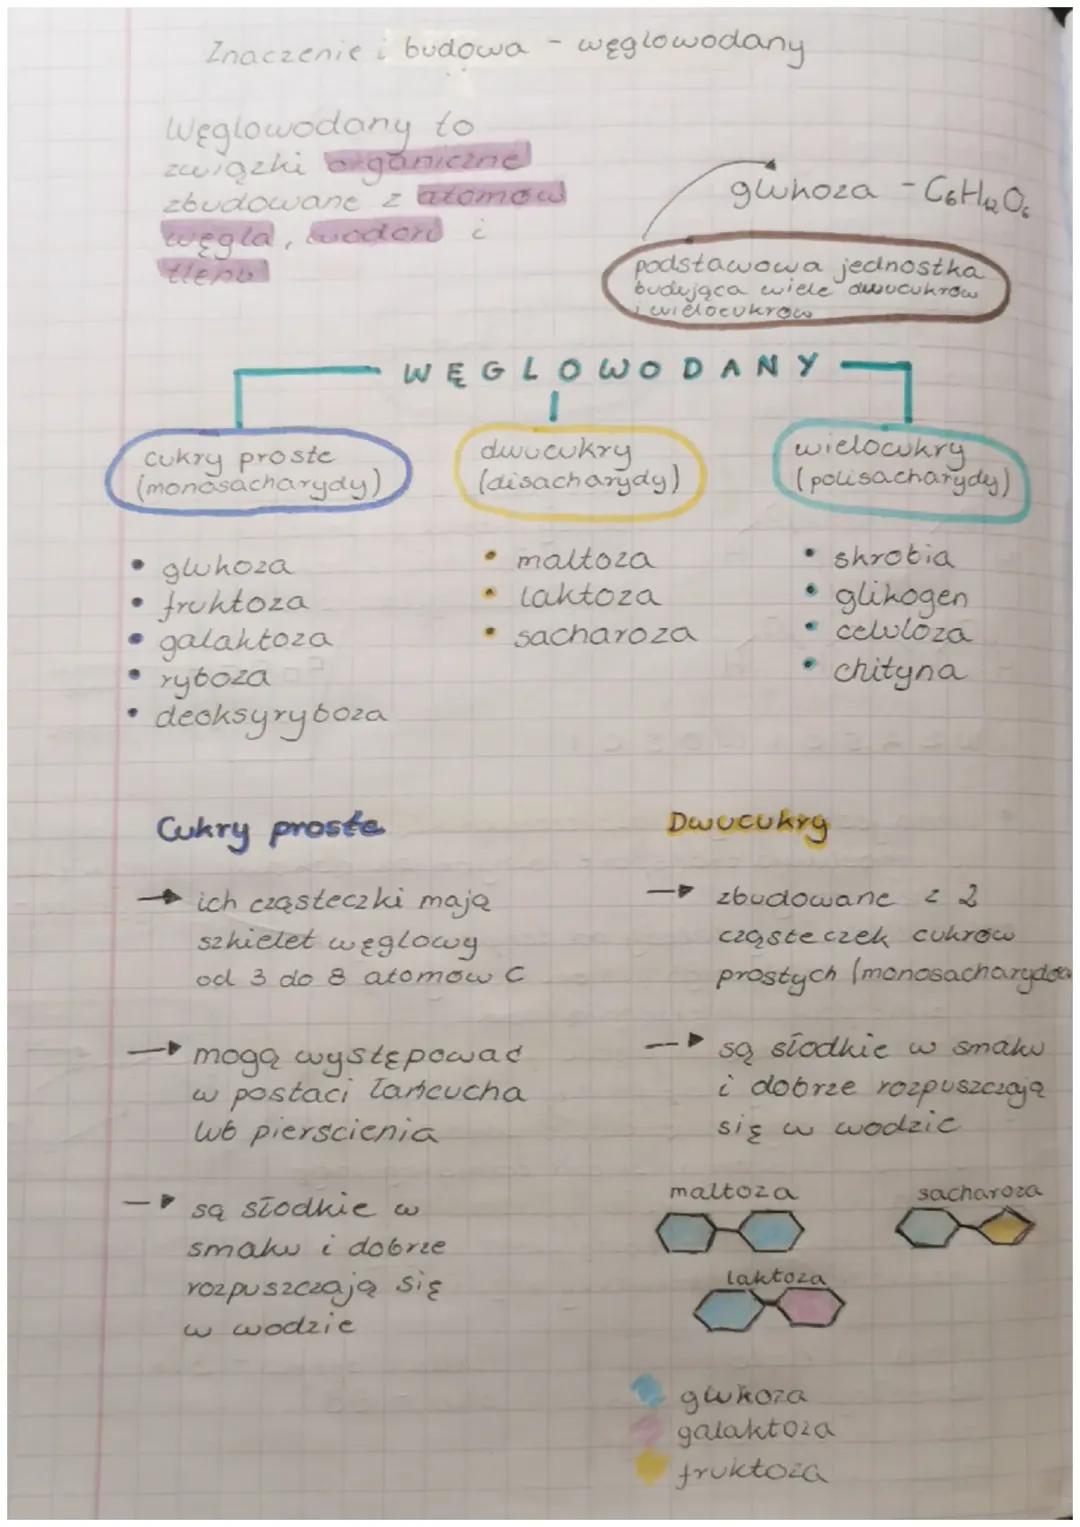 Znaczenie i budowa - węglowodany
Węglowodany to
związki organiczne
zbudowane z atomów
węgla, wodoru i
tlenu
glukoza - C6H12O6
podstawowa jednostka
budująca wiele dwucukrów
i wielocukrów
WĘGLOWODANY
cukry proste
(monosacharydy)
• glukoza
• fruktoza
• galaktoza
• ryboza
• deoksyryboza
dwucukry
(disacharydy)
• maltoza
• laktoza
• sacharoza
wielocukry
(polisacharydy)
• skrobia
• glikogen
• celuloza
• chityna
Cukry proste
→ ich cząsteczki mają
szkielet węglowy
od 3 do 8 atomów C
→ mogą występować
w postaci łańcucha
lub pierścienia
→ są słodkie w
smaku i dobrze
rozpuszczają się
w wodzie
Dwucukry
→ zbudowane z 2
cząsteczek cukrów
prostych (monosacharydów
→ są słodkie w smaku
i dobrze rozpuszczają
się w wodzie
maltoza
sacharoza
laktoza
glukoza
galaktoza
fruktoza